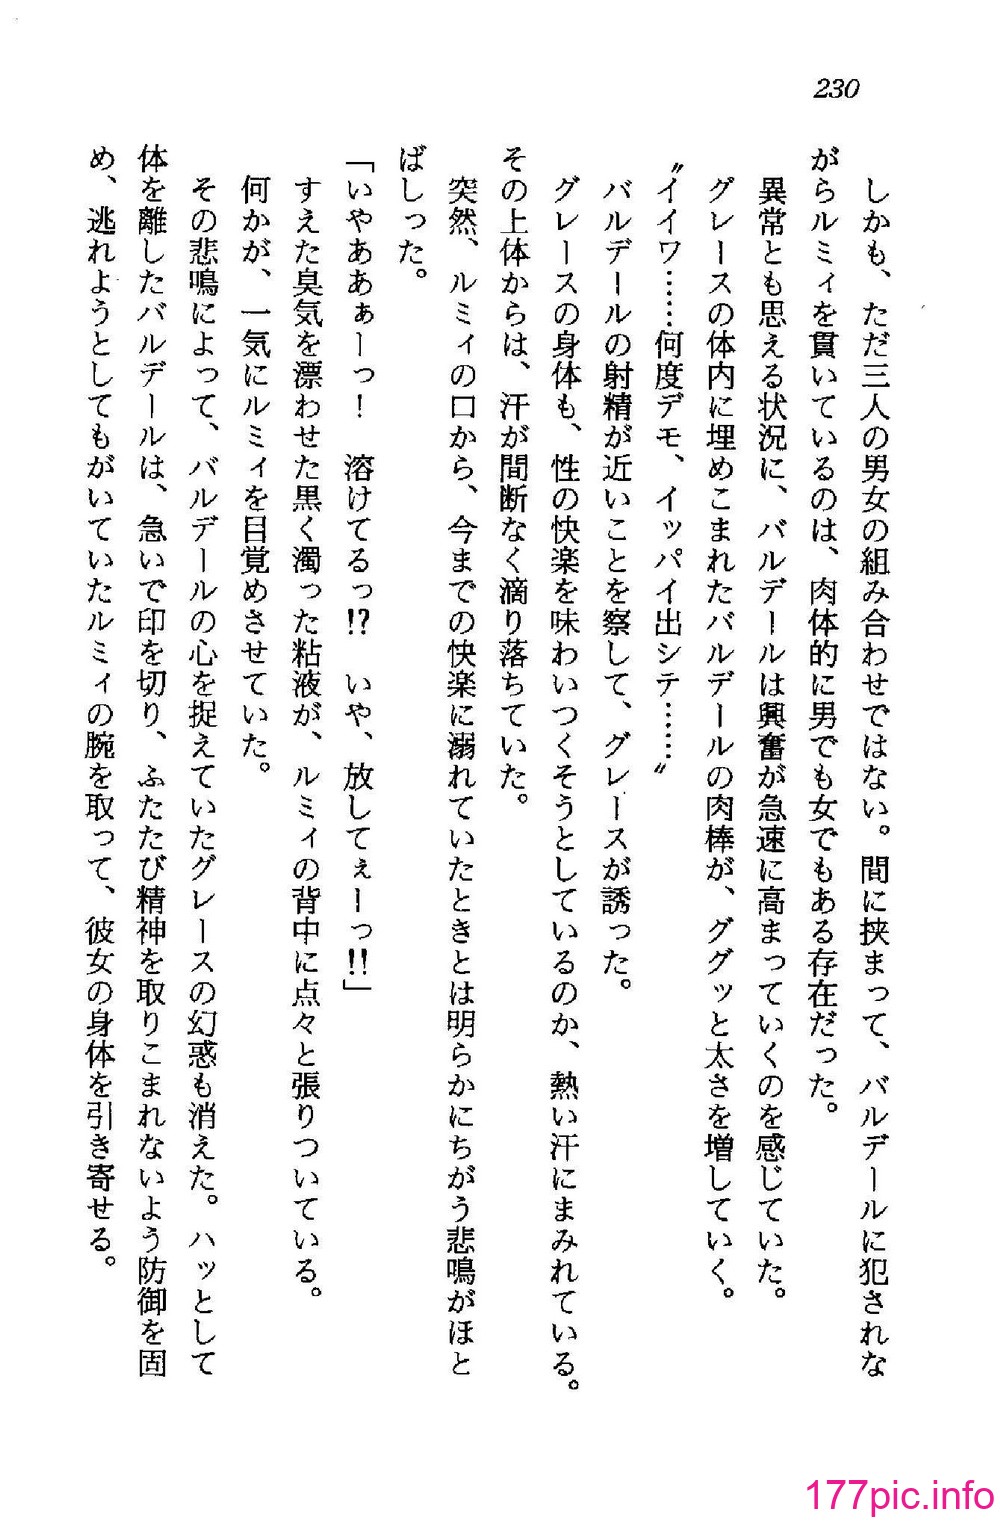 230
しかも、ただ三人の男女の組み合わせではない。間に挟まって、バルデールに犯されな
がらルミィを貫いているのは、肉体的に男でも女でもある存在だった。
異常とも思える状況に、バルデールは興奮が急速に高まっていくのを感じていた。
グレースの体内に埋めこまれたバルデールの肉棒が、ググッと太さを増していく。
〝イイワ……何度デモ、イッパイ出シテ……〟
バルデールの射精が近いことを察して、グレースが誘った。
グレースの身体も、性の快楽を味わいつくそうとしているのか、熱い汗にまみれている。
その上体からは、汗が間断なく滴り落ちていた。
突然、ルミィの口から、今までの快楽に溺れていたときとは明らかにちがう悲鳴がほと
ばしった。
「いやああぁーっ！　溶けてるっ!?　いや、放してぇーっ!!」
すえた臭気を漂わせた黒く濁った粘液が、ルミィの背中に点々と張りついている。
何かが、一気にルミィを目覚めさせていた。
その悲鳴によって、バルデールの心を捉えていたグレースの幻惑も消えた。ハッとして
体を離したバルデールは、急いで印を切り、ふたたび精神を取りこまれないよう防御を固
め、逃れようとしてもがいていたルミィの腕を取って、彼女の身体を引き寄せる。
177pic.info